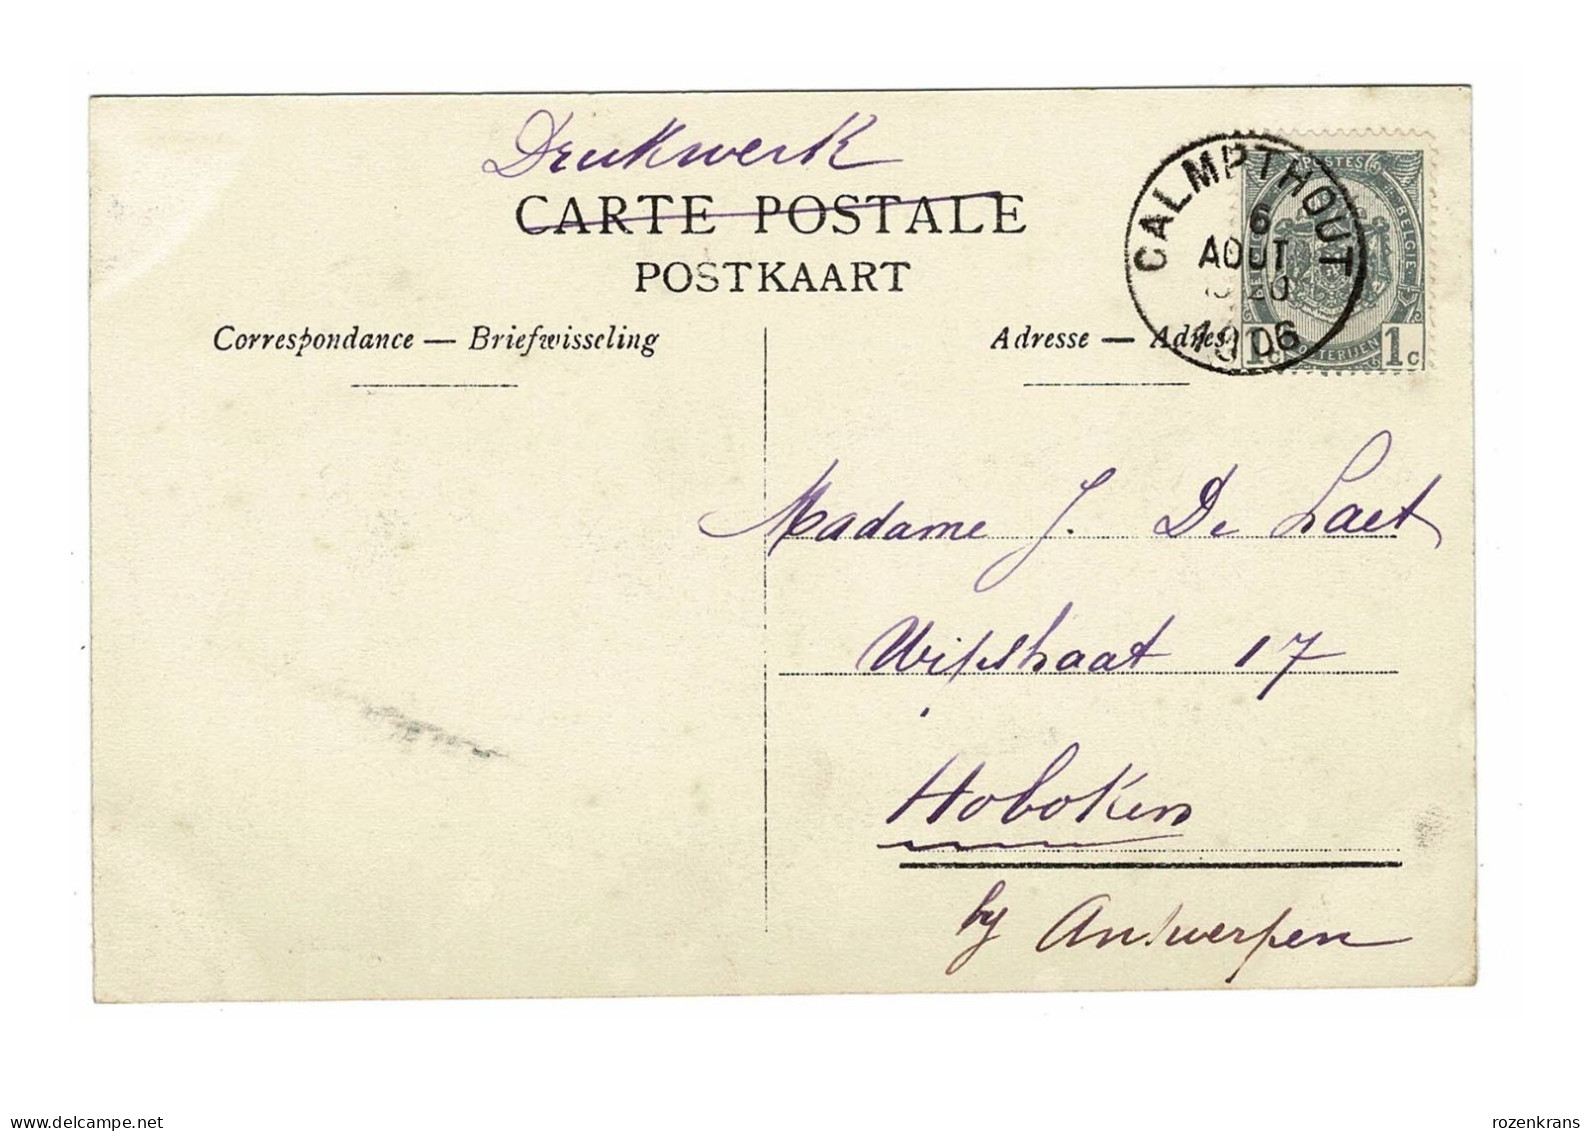 Drukwerk
CARTE POSTALE
POSTKAART
CALMPTHOUT
6
AOUT
20
1906
POSTES
BELGIE
POSTERIJEN
1c 1c
Correspondance — Briefwisseling
Adresse — Adres
Madame J. De Laet
Wipstraat 17
Hoboken
by Antwerpen
www.delcampe.net
rozenkrans